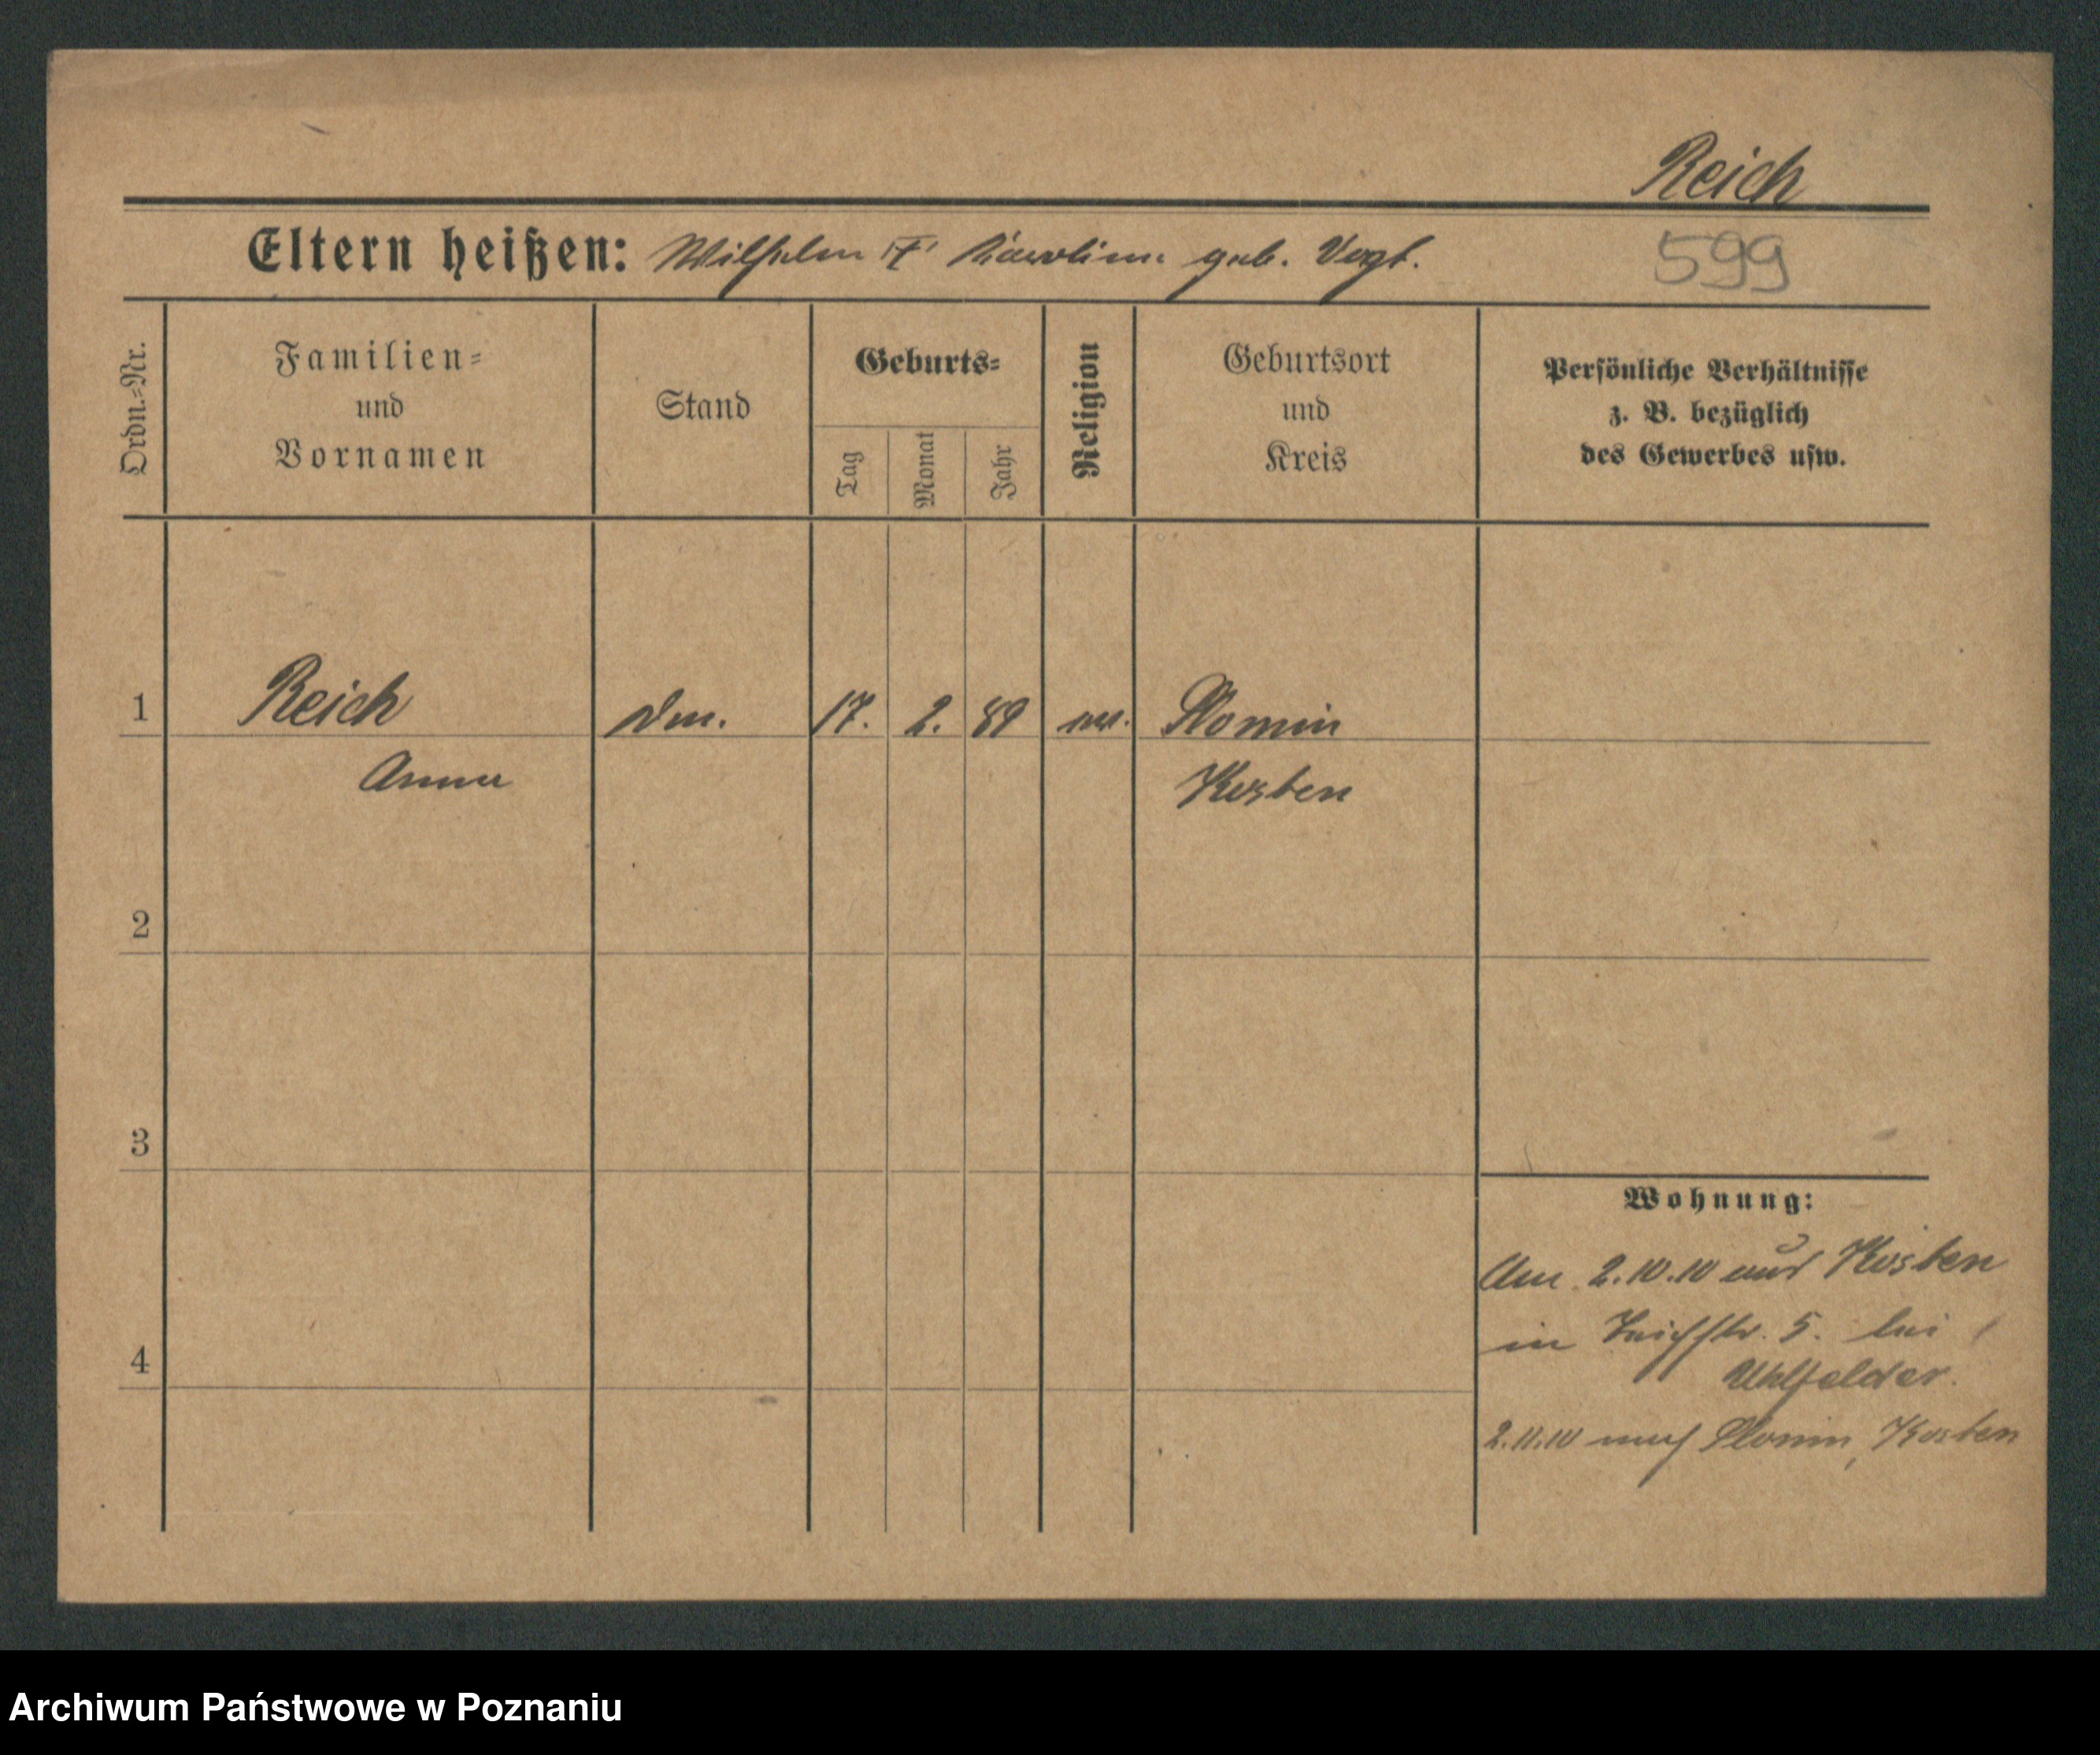 Reich
Eltern heißen: Wilhelm Karoline geb. Vogt.
599
Ordn.=Nr.
Familien=
und
Vornamen
Stand
Geburts=
Tag
Monat
Jahr
Religion
Geburtsort
und
Kreis
Persönliche Verhältnisse
z. B. bezüglich
des Gewerbes usw.
1
Reich
17.
2.
89
Slonin
Anna
Kosten
2
3
4
Wohnung:
Am 2.10.10 aus Kosten
in Teichstr. 5. bei
Uhlfelder.
2.11.10 nach Slonin, Kosten
Archiwum Państwowe w Poznaniu